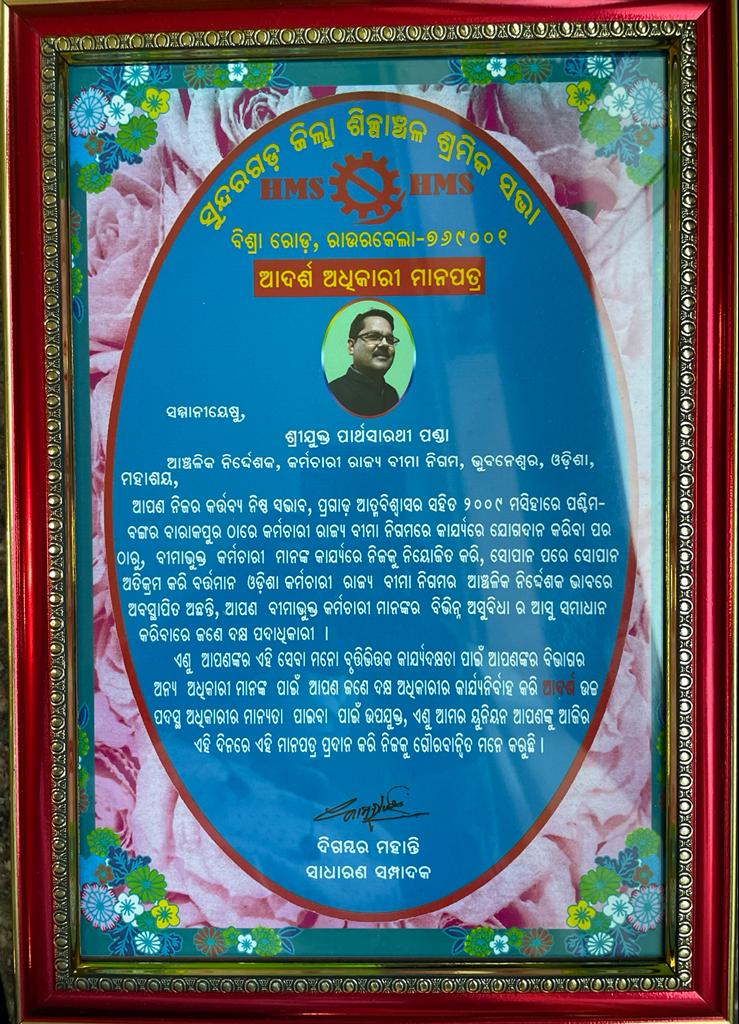 ସୁନ୍ଦରଗଡ଼ ଜିଲ୍ଲା ଶିଳ୍ପାଞ୍ଚଳ ଶ୍ରମିକ ସଭା
HMS HMS
ବିଶ୍ରା ରୋଡ଼, ରାଉରକେଲା-୭୬୯୦୦୧
ଆଦର୍ଶ ଅଧିକାରୀ ମାନପତ୍ର
ସମ୍ମାନୀୟେଷୁ,
ଶ୍ରୀଯୁକ୍ତ ପାର୍ଥସାରଥୀ ପଣ୍ଡା
ଆଞ୍ଚଳିକ ନିର୍ଦ୍ଦେଶକ, କର୍ମଚାରୀ ରାଜ୍ୟ ବୀମା ନିଗମ, ଭୁବନେଶ୍ୱର, ଓଡ଼ିଶା,
ମହାଶୟ,
ଆପଣ ନିଜର କର୍ତ୍ତବ୍ୟ ନିଷ୍ଠ ସଭାବ, ପ୍ରଗାଢ଼ ଆତ୍ମବିଶ୍ୱାସର ସହିତ ୨୦୦୯ ମସିହାରେ ପଶ୍ଚିମ-
ବଙ୍ଗର ବାରାକପୁର ଠାରେ କର୍ମଚାରୀ ରାଜ୍ୟ ବୀମା ନିଗମରେ କାର୍ଯ୍ୟରେ ଯୋଗଦାନ କରିବା ପର
ଠାରୁ, ବୀମାଭୁକ୍ତ କର୍ମଚାରୀ ମାନଙ୍କ କାର୍ଯ୍ୟରେ ନିଜକୁ ନିୟୋଜିତ କରି, ସୋପାନ ପରେ ସୋପାନ
ଅତିକ୍ରମ କରି ବର୍ତ୍ତମାନ ଓଡ଼ିଶା କର୍ମଚାରୀ ରାଜ୍ୟ ବୀମା ନିଗମର ଆଞ୍ଚଳିକ ନିର୍ଦ୍ଦେଶକ ଭାବରେ
ଅବସ୍ଥାପିତ ଅଛନ୍ତି, ଆପଣ ବୀମାଭୁକ୍ତ କର୍ମଚାରୀ ମାନଙ୍କର ବିଭିନ୍ନ ଅସୁବିଧା ର ଆସୁ ସମାଧାନ
କରିବାରେ ଜଣେ ଦକ୍ଷ ପଦାଧିକାରୀ ।
ଏଣୁ ଆପଣଙ୍କର ଏହି ସେବା ମନୋ ବୃତ୍ତିଭିତ୍ତକ କାର୍ଯ୍ୟଦକ୍ଷତା ପାଇଁ ଆପଣଙ୍କର ବିଭାଗର
ଅନ୍ୟ ଅଧିକାରୀ ମାନଙ୍କ ପାଇଁ ଆପଣ ଜଣେ ଦକ୍ଷ ଅଧିକାରୀର କାର୍ଯ୍ୟନିର୍ବାହ କରି ଆଦର୍ଶ ଉଚ୍ଚ
ପଦସ୍ଥ ଅଧିକାରୀର ମାନ୍ୟତା ପାଇବା ପାଇଁ ଉପଯୁକ୍ତ, ଏଣୁ ଆମର ୟୁନିୟନ ଆପଣଙ୍କୁ ଆଜିର
ଏହି ଦିନରେ ଏହି ମାନପତ୍ର ପ୍ରଦାନ କରି ନିଜକୁ ଗୌରବାନ୍ୱିତ ମନେ କରୁଛି ।
ଦିଗମ୍ବର ମହାନ୍ତି
ସାଧାରଣ ସମ୍ପାଦକ